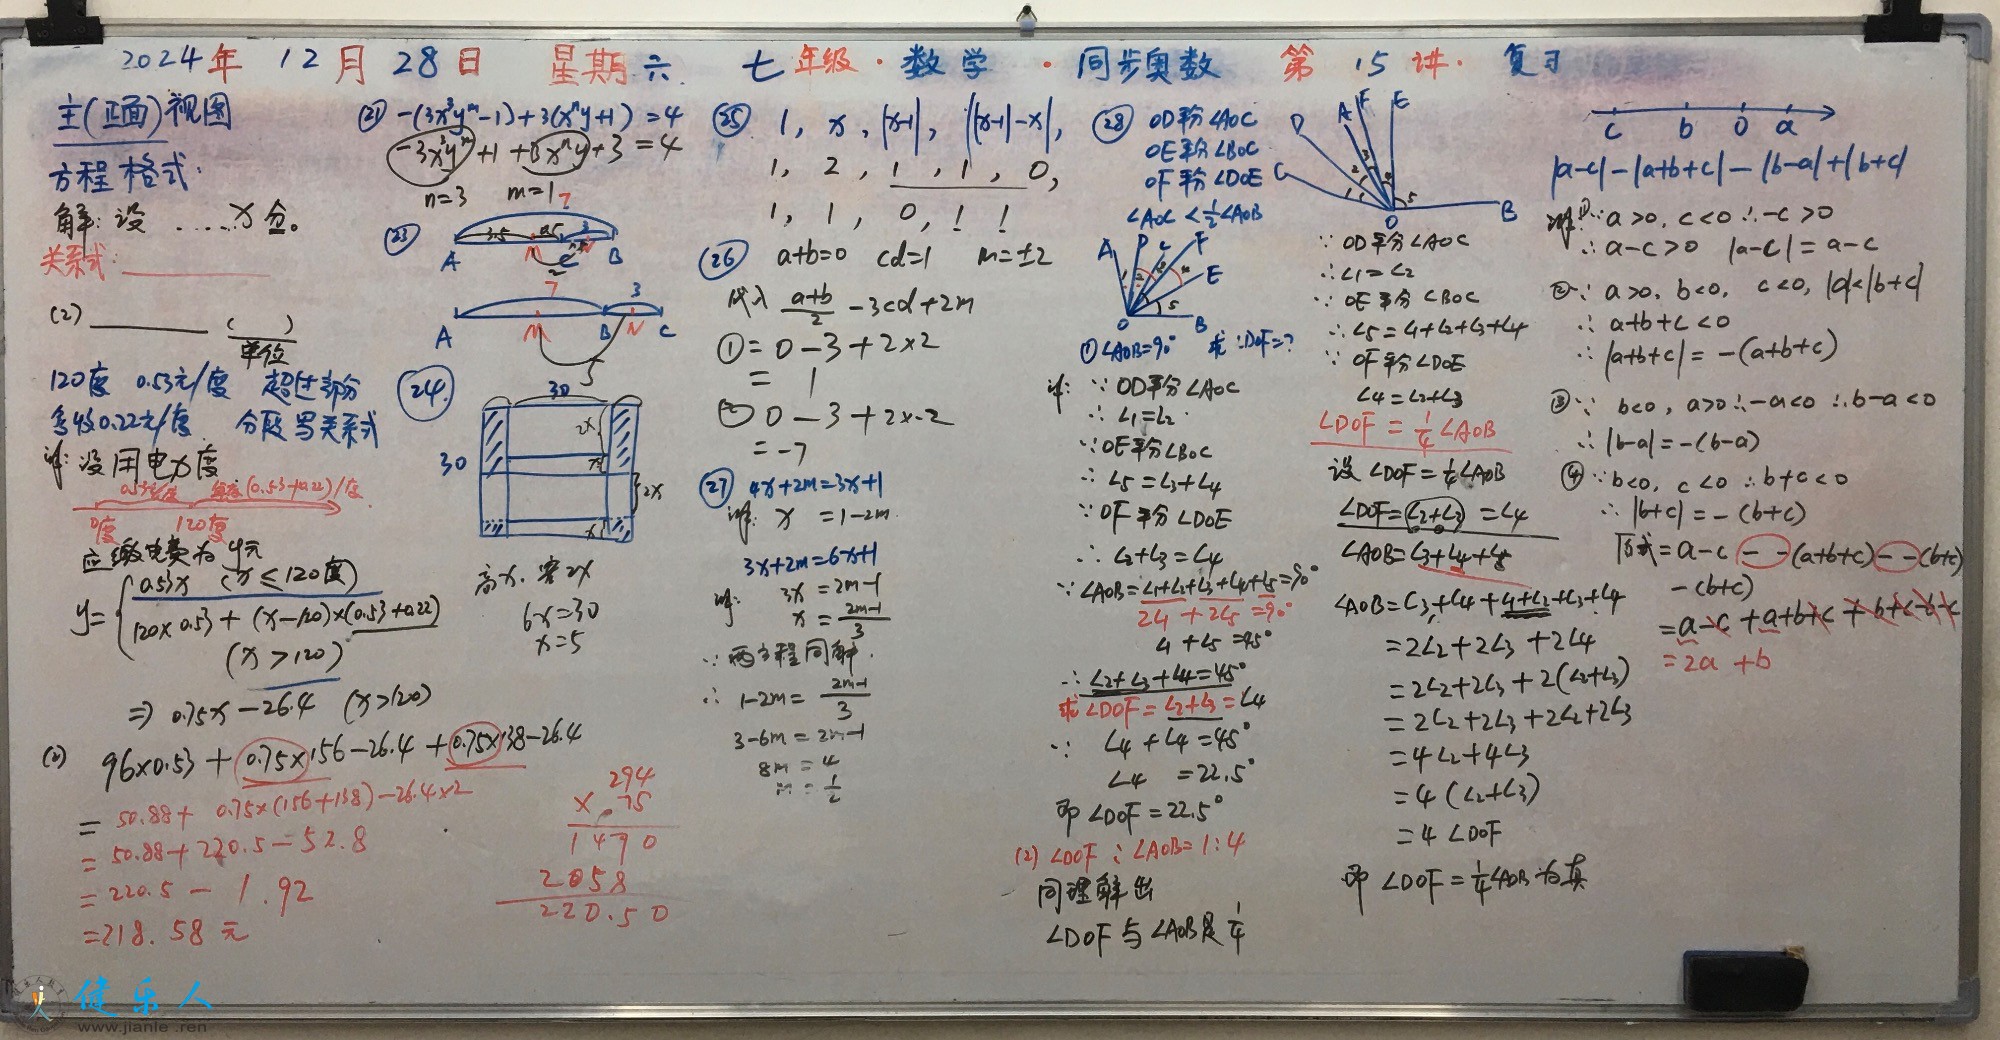 2024年 12月 28日 星期六 七年级·数学·同步奥数 第 15 讲·复习
主(正面)视图
方程格式:
解:设 .....x 分。
关系式:
(2) ( )
单位
120度 0.53元/度 超过部分
多收0.22元/度 分段写关系式
解:设用电x度
0度 120度
应缴电费为y元
y={0.53x (x≤120度)
120×0.53+(x-120)×(0.53+0.22)
(x>120)
⇒ 0.75x-26.4 (x>120)
(2) 96×0.53+0.75×156-26.4+0.75×138-26.4
= 50.88+ 0.75×(156+138)-26.4×2
= 50.88+220.5-52.8
= 220.5 - 1.92
=218.58元
294
×.75
1470
2058
220.50
(21) -(3x³yᵐ-1)+3(xⁿy+1)=4
-3x³yᵐ+1+3xⁿy+3=4
n=3 m=1
(23) 7
3.5
A M C N B
2
7 3
A M B N C
5
(24) 30
30
2x
x
2x
x
高x.宽2x
6x=30
x=5
(25) 1, x, |x-1|, ||x-1|-x|,
1, 2, 1, 1, 0,
1, 1, 0, ! !
(26) a+b=0 cd=1 m=±2
代入 a+b/2 -3cd+2m
①= 0-3+2×2
= 1
② 0-3+2×-2
=-7
(27) 4x+2m=3x+1
解: x =1-2m
3x+2m=6x+1
解: 3x=2m-1
x=2m-1/3
∵两方程同解.
∴ 1-2m= 2m-1/3
3-6m=2m-1
8m=4
m=1/2
(28) OD平分∠AOC
OE平分∠BOC
OF平分∠DOE
∠AOC<1/2∠AOB
A D C F E
O B
①∠AOB=90° 求∠DOF=?
解: ∵OD平分∠AOC
∴∠1=∠2
∵OE平分∠BOC
∴ ∠5=∠3+∠4
∵OF平分∠DOE
∴ ∠2+∠3=∠4
∵∠AOB=∠1+∠2+∠3+∠4+∠5=90°
2∠4+2∠5=90°
∠4+∠5=45°
∴∠2+∠3+∠4=45°
求∠DOF=∠2+∠3=∠4
∵ ∠4+∠4=45°
∠4 =22.5°
即∠DOF=22.5°
(2) ∠DOF:∠AOB=1:4
同理解出
∠DOF与∠AOB是1/4
C D A F E
O B
∵OD平分∠AOC
∴∠1=∠2
∵OE平分∠BOC
∴∠5=∠1+∠2+∠3+∠4
∵OF平分∠DOE
∠4=∠2+∠3
∠DOF=1/4∠AOB
设∠DOF=1/4∠AOB
∠DOF=(∠2+∠3)=∠4
∠AOB=∠3+∠4+∠5
∠AOB=∠3+∠4+∠1+∠2+∠3+∠4
=2∠2+2∠3+2∠4
=2∠2+2∠3+2(∠2+∠3)
=2∠2+2∠3+2∠2+2∠3
=4∠2+4∠3
=4(∠2+∠3)
=4∠DOF
即∠DOF=1/4∠AOB为真
c b 0 a
|a-c|-|a+b+c|-|b-a|+|b+c|
解①∵a>0,c<0∴-c>0
∴a-c>0 |a-c|=a-c
②∵a>0, b<0, c<0, |a|<|b+c|
∴a+b+c<0
∴|a+b+c|=-(a+b+c)
③∵ b<0, a>0∴-a<0∴b-a<0
∴|b-a|=-(b-a)
④∵b<0, c<0∴b+c<0
∴|b+c|=-(b+c)
原式=a-c--(a+b+c)--(b+c)
-(b+c)
=a-c+a+b+c+b+c-b-c
=2a+b
健乐人
www.jianle.ren